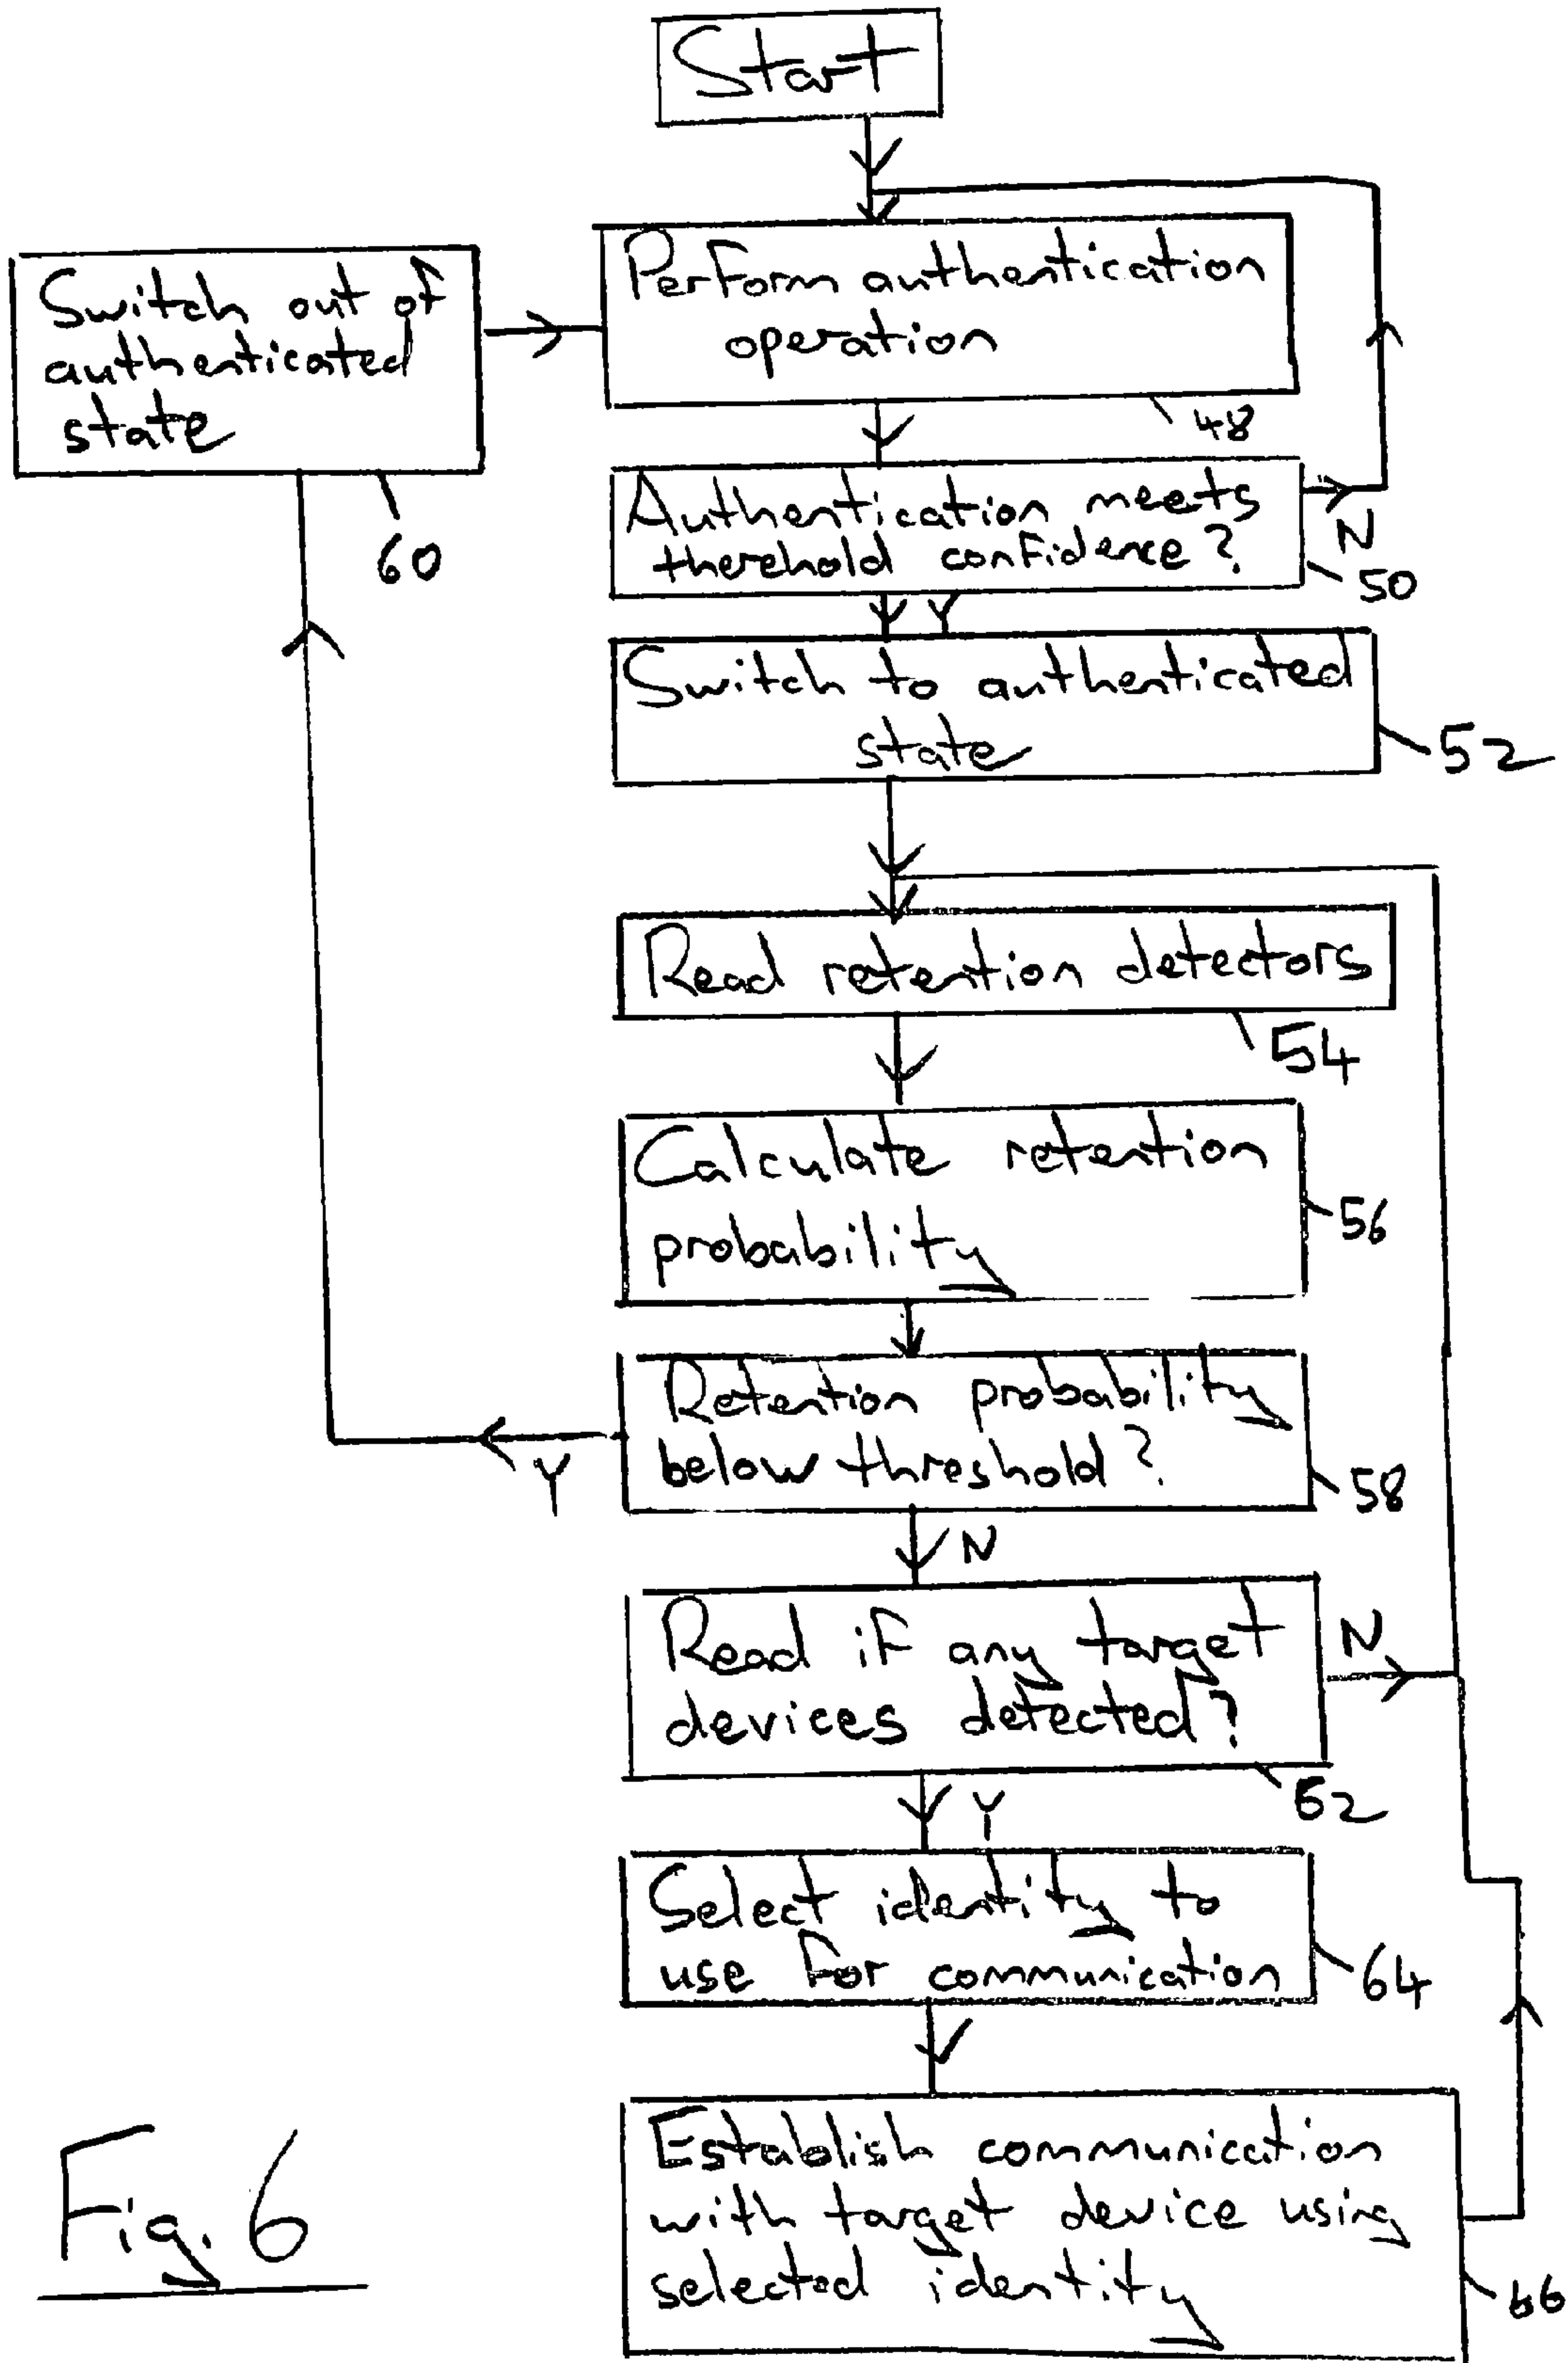 Start
Perform authentication
operation
48
Switch out of
authenticated
state
60
Authentication meets
therehold confidence?
N
50
Y
Switch to authenticated
state
52
Read retention detectors
54
Calculate retention
probability
56
Retention probability
below threshold?
Y
58
N
Read if any target
devices detected?
N
62
Y
Select identity to
use for communication
64
Establish communication
with target device using
selected identity
66
Fig. 6